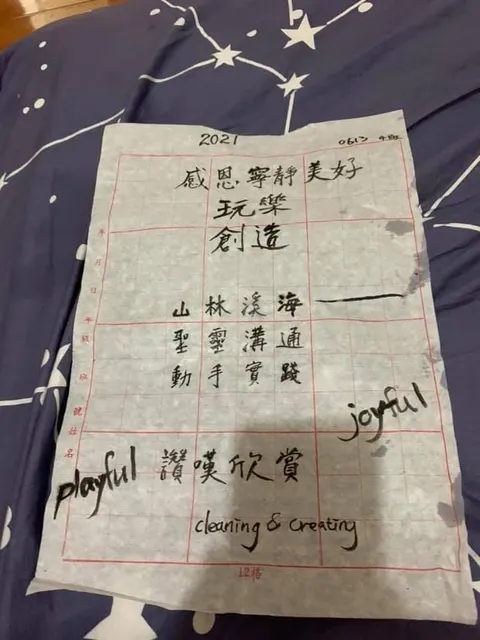 2021
0613
感恩寧靜美好
玩樂
創造
山林溪海
聖靈溝通
動手實踐
joyful
playful
讚嘆欣賞
cleaning & creating
年月日年級班號姓名
12格